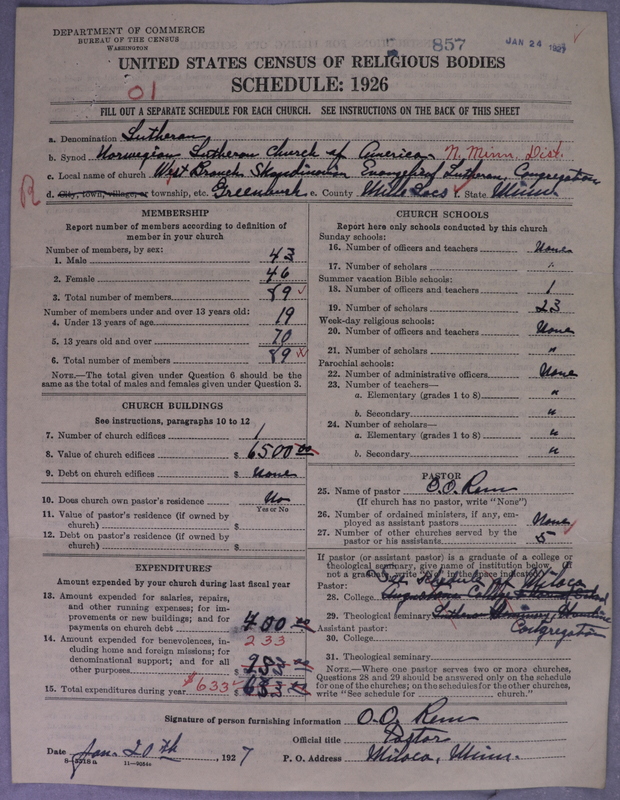 DEPARTMENT OF COMMERCE
BUREAU OF THE CENSUS
WASHINGTON
857
JAN 24 1927
UNITED STATES CENSUS OF RELIGIOUS BODIES
SCHEDULE: 1926
01
FILL OUT A SEPARATE SCHEDULE FOR EACH CHURCH. SEE INSTRUCTIONS ON THE BACK OF THIS SHEET
a. Denomination Lutheran
b. Synod Norwegian Lutheran Church of America N. Minn. Dist.
c. Local name of church West Branch Skandinavian Evangelical Lutheran Congregation
R
d. City, town, village, or township, etc. Greenbush e. County Mille Lacs f. State Minn
MEMBERSHIP
Report number of members according to definition of member in your church
Number of members, by sex:
1. Male 43
2. Female 46
3. Total number of members 89
Number of members under and over 13 years old:
4. Under 13 years of age 19
5. 13 years old and over 70
6. Total number of members 89
NOTE.—The total given under Question 6 should be the same as the total of males and females given under Question 3.
CHURCH BUILDINGS
See instructions, paragraphs 10 to 12
7. Number of church edifices 1
8. Value of church edifices $ 6500 00
9. Debt on church edifices $ None
10. Does church own pastor's residence No
Yes or No
11. Value of pastor's residence (if owned by church) $
12. Debt on pastor's residence (if owned by church) $
EXPENDITURES
Amount expended by your church during last fiscal year
13. Amount expended for salaries, repairs, and other running expenses; for improvements or new buildings; and for payments on church debt $ 400 00
233
14. Amount expended for benevolences, including home and foreign missions; for denominational support; and for all other purposes $ 283 00
15. Total expenditures during year $633 $ 683 00
CHURCH SCHOOLS
Report here only schools conducted by this church
Sunday schools:
16. Number of officers and teachers None
17. Number of scholars "
Summer vacation Bible schools:
18. Number of officers and teachers 1
19. Number of scholars 23
Week-day religious schools:
20. Number of officers and teachers None
21. Number of scholars "
Parochial schools:
22. Number of administrative officers None
23. Number of teachers—
a. Elementary (grades 1 to 8) "
b. Secondary "
24. Number of scholars—
a. Elementary (grades 1 to 8) "
b. Secondary "
PASTOR
25. Name of pastor O.O.
(If church has no pastor, write "None")
26. Number of ordained ministers, if any, employed as assistant pastors None
27. Number of other churches served by the pastor or his assistants 5
If pastor (or assistant pastor) is a graduate of a college or theological seminary, give name of institution below. (If not a graduate, write "None" in the space indicated)
See Report of Milaca
Pastor:
28. College Augustana College
29. Theological seminary Luther Seminary
Congregation
Assistant pastor:
30. College
31. Theological seminary
NOTE.—Where one pastor serves two or more churches, Questions 28 and 29 should be answered only on the schedule for one of the churches; on the schedules for the other churches, write "See schedule for church."
Signature of person furnishing information O.O.
Official title Pastor
Date Jan. 20th, 1927 P. O. Address Milaca, Minn.
8-5518a 11-9054